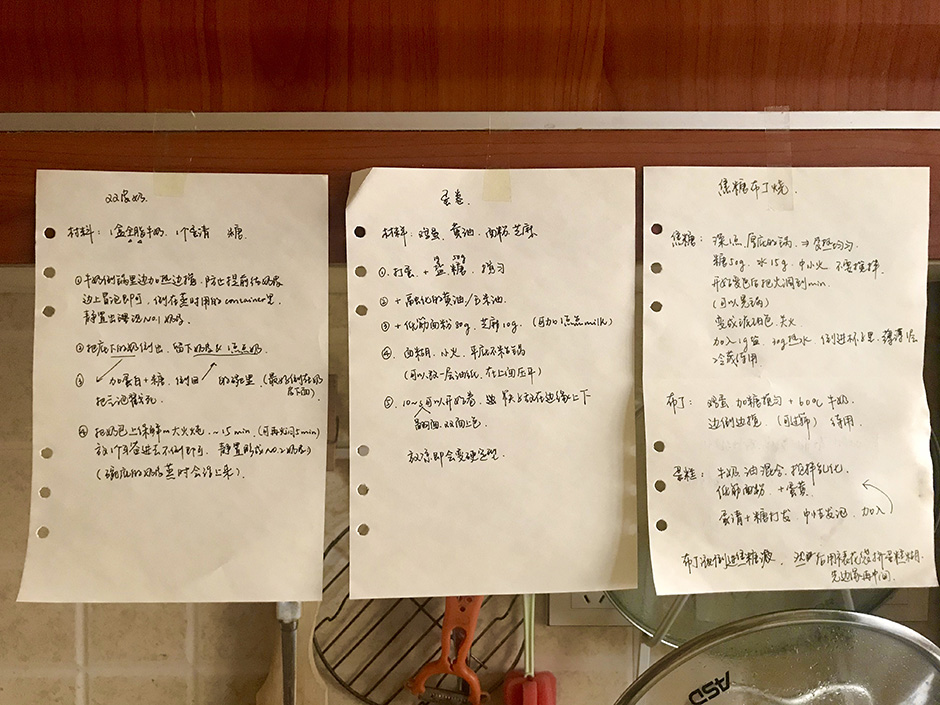 双皮奶.
材料: 1盒全脂牛奶. 1个蛋清 糖.
①牛奶倒锅里边加热边搅, 防止提前结奶皮
边上冒泡即可, 倒在蒸时用的container里.
静置出漂浮NO.1奶皮.
②把底下的奶倒出, 留下奶皮以及一点点奶
③ 加蛋白+糖. 倒回 的碗里 (最好倒在奶
皮下面)
把三泡戳死.
④ 把奶包上保鲜m大火炖, ~15min, (可再闷5min)
放个牙签进去不倒即可. 静置形成NO.2奶皮)
(碗底的奶皮蒸时会浮上来).
蛋卷.
材料: 鸡蛋, 黄油, 面粉, 芝麻
①. 打蛋. + 盐 糖. 搅匀
② + 融化的黄油/玉米油
③ + 低筋面粉80g, 芝麻10g. (可加一点点milk)
④ 面糊. 小火. 平底不粘锅
(可以放一层油纸, 在上面压平)
⑤. 可以开始卷,
翻面. 双面上色.
放凉即会变硬定型.
焦糖布丁烧.
焦糖: 深一点厚底的锅. ⇒ 受热均匀
糖50g. 水15g. 中小火 不要搅拌
开始变色后把火调到min.
(可以晃锅)
变成琥珀色 关火
加入1g盐. 30g热水, 倒进杯子里. 薄薄一层
冷藏待用.
布丁: 鸡蛋 加糖搅匀 + 60℃ 牛奶
边倒边搅. (可过筛) 待用.
蛋糕: 牛奶 油混合. 搅拌乳化.
低筋面粉. +蛋黄.
蛋清+糖打发 中性发泡. 加入
布丁液倒进焦糖液, 然后用裱花袋挤蛋糕糊.
先边缘再中间.
ASD